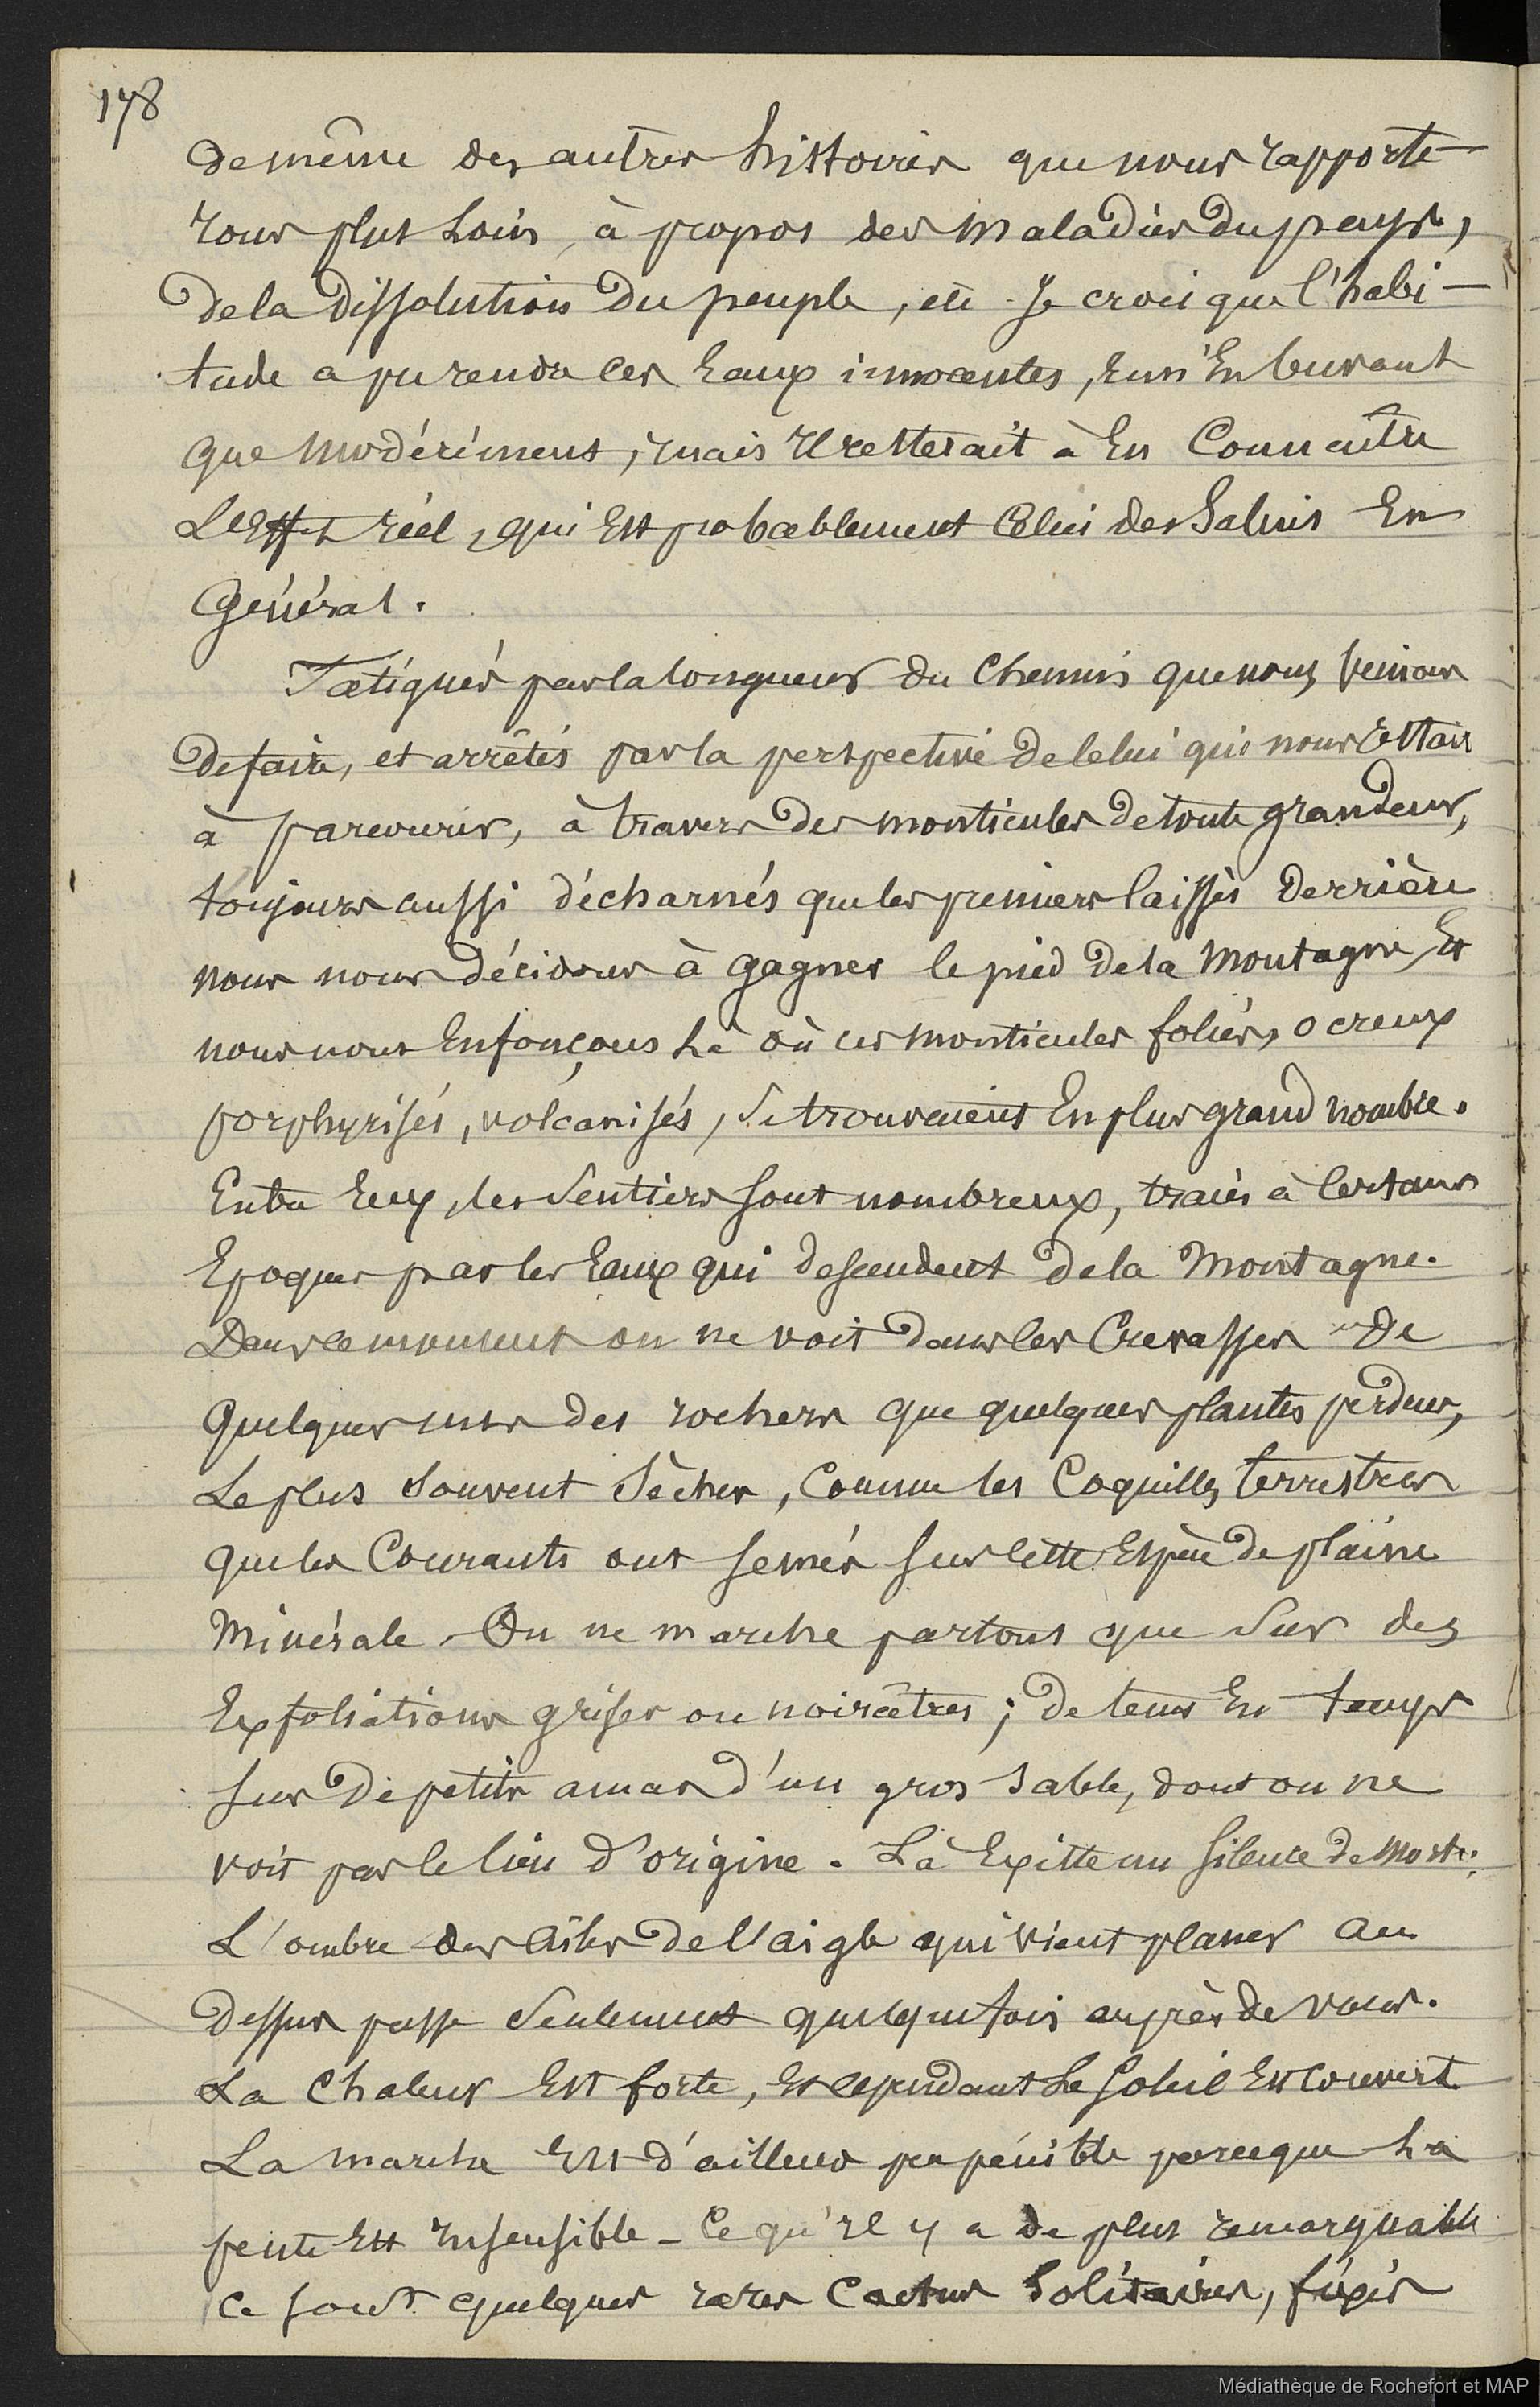 178
de même des autres histoires que nous rapporte-
rons plus loin, à propos des maladies du pays,
de la dissolution du peuple, etc. Je crois que l'habi-
tude a pu rendre ces eaux innocentes, en n'en buvant
que modérément, mais il resterait à en connaître
l'effet réel, qui est probablement celui des salins en
général.
Fatigués par la longueur du chemin que nous venions
de faire, et arrêtés par la perspective de celui qui nous restait
à parcourir, à travers des monticules de toute grandeur,
toujours aussi décharnés que les premiers laissés derrière
nous nous décidons à gagner le pied de la montagne, et
nous nous enfonçons là où ces monticules foliés, ocreux
porphyrisés, volcanisés, se trouvaient en plus grand nombre.
Entre eux, les sentiers sont nombreux, tracés à certains
époques par les eaux qui descendent de la montagne.
Dans ce moment on ne voit dans les crevasses de
quelques uns des rochers que quelques plantes perdues,
le plus souvent sèches, comme les coquilles terrestres
que les courants ont semés sur cette espèce de plaine
minérale. On ne marche partout que sur des
exfoliations grises ou noirâtres; de tems en temps
sur de petits amas d'un gros sable, dont on ne
voit pas le lieu d'origine. Là existe un silence de mort;
L'ombre des ailes de l'aigle qui vient planer au
dessus passe seulement quelquefois auprès de vous.
La chaleur est forte, et cependant le soleil est couvert
La marche est d'ailleurs peu pénible parceque la
pente est insensible - Ce qu'il y a de plus remarquable
ce sont quelques rares cactus solitaires, fixés
Médiathèque de Rochefort et MAP